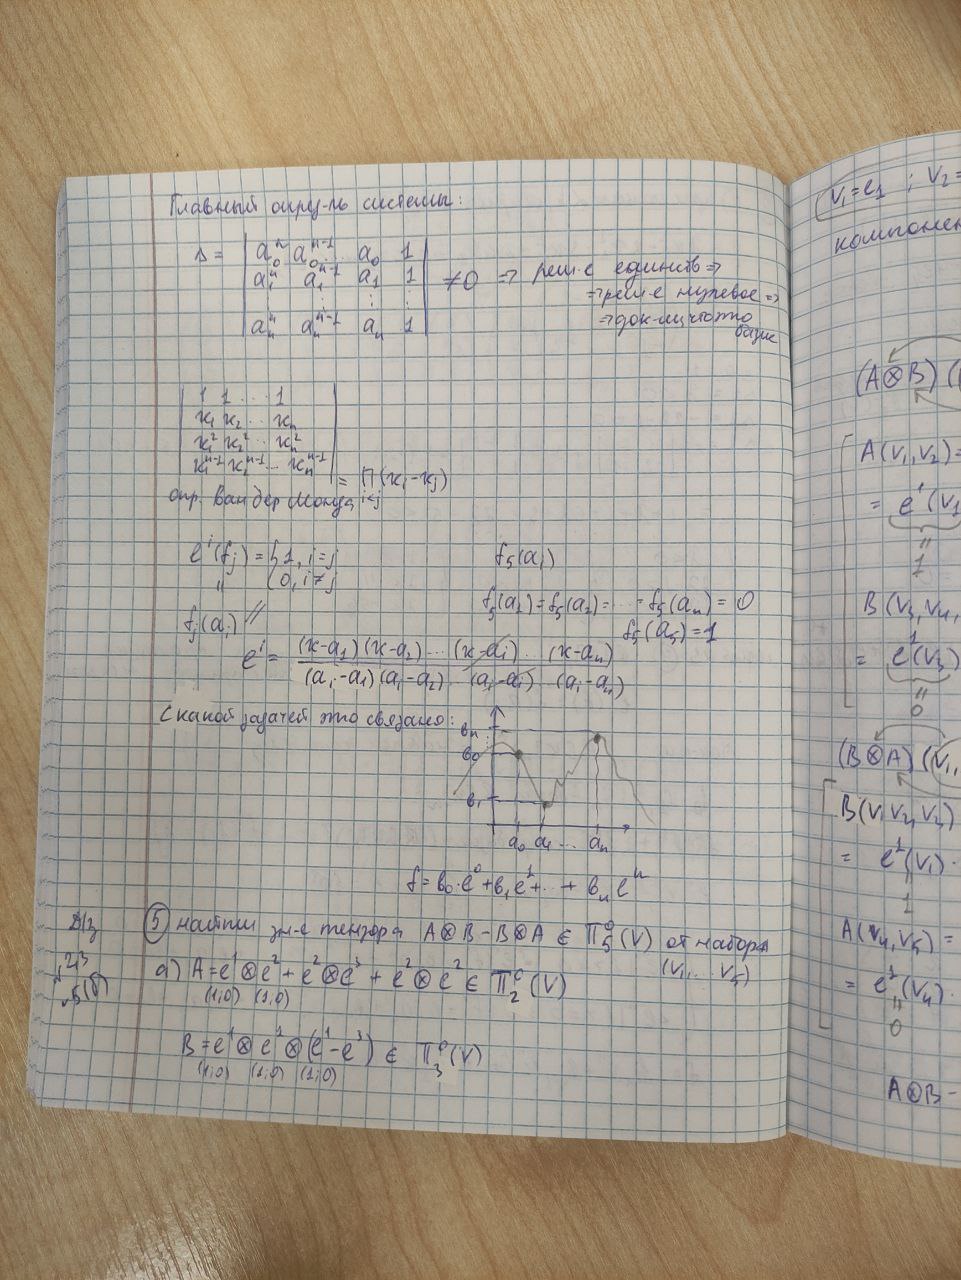 Главный опред-ль системы:
Δ = | a₀ⁿ a₀ⁿ⁻¹ ... a₀ 1 |
| a₁ⁿ a₁ⁿ⁻¹ a₁ 1 | ≠ 0 ⇒ реш-е единств ⇒
⇒ реш-е нулевое ⇒
| aₙⁿ aₙⁿ⁻¹ aₙ 1 | ⇒ док-ли, что это
базис
| 1 1 ... 1 |
| x₁ x₂ ... xₙ |
| x₁² x₂² ... xₙ² |
| x₁ⁿ⁻¹ x₂ⁿ⁻¹ ... xₙⁿ⁻¹ | = ∏ (xᵢ - xⱼ)
опр. Вандермонда i<j
eⁱ(fⱼ) = { 1, i=j
0, i≠j
f₅(aᵢ)
fⱼ(aᵢ)
f₅(a₁) = f₅(a₂) = ... = f₅(aₙ) = 0
f₅(a₅) = 1
eⁱ = (x-a₁)(x-a₂) ... (x-aᵢ) ... (x-aₙ)
(aᵢ-a₁)(aᵢ-a₂) ... (aᵢ-aᵢ) (aᵢ-aₙ)
С какой задачей это связано:
bₙ
b₀
b₁
a₀ a₁ ... aₙ
f = b₀·e⁰ + b₁e¹ + ... + bₙeⁿ
Д/з
⑤ найти зн-е тензора A⊗B - B⊗A ∈ Π₅⁰(V) от набора
(v₁, ... v₅)
а) A = e¹⊗e² + e²⊗e³ + e²⊗e² ∈ Π₂⁰(V)
(1;0) (1;0)
B = e¹⊗e¹⊗(e¹-e³) ∈ Π₃⁰(V)
(1;0) (1;0) (1;0)
v₁=e₁ ; v₂=
(A⊗B)(
A(v₁,v₂)=
= e¹(v₁
"
1
B(v₃,v₄,
= e¹(v₃)
"
0
(B⊗A)(v₁,
B(v₁ v₂ v₃)
= e¹(v₁)·
"
1
A(v₄,v₅)=
= e¹(v₄)·
"
0
A⊗B-